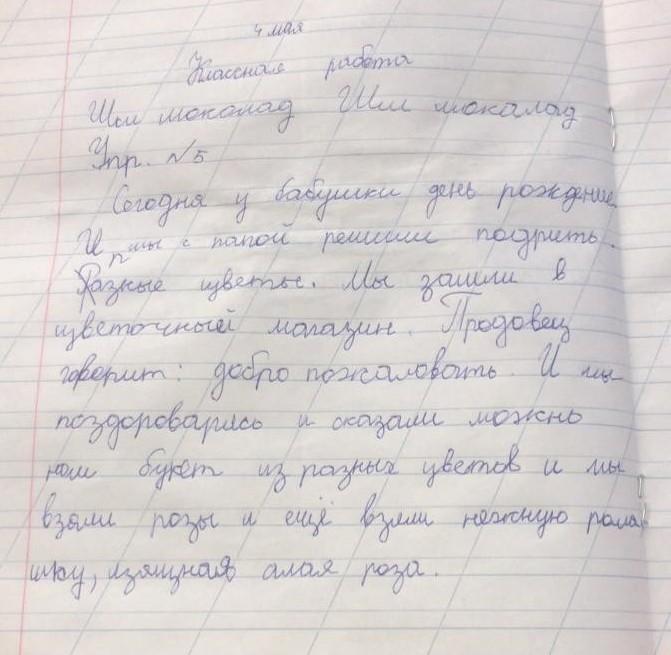 4 мая
Классная работа
Шш шоколад Шш шокалад
Упр. №5
Сегодня у бабушки день рождение.
И мы с папой решили подрить.
Разные цветы. Мы зашли в
цветочный магазин. Продовец
говорит: добро пожаловать. И мы
поздоровались и сказали можнь
нам букет из разных цветов и мы
взяли розы и ещё взяли нежную рома
шку, изящная алая роза.